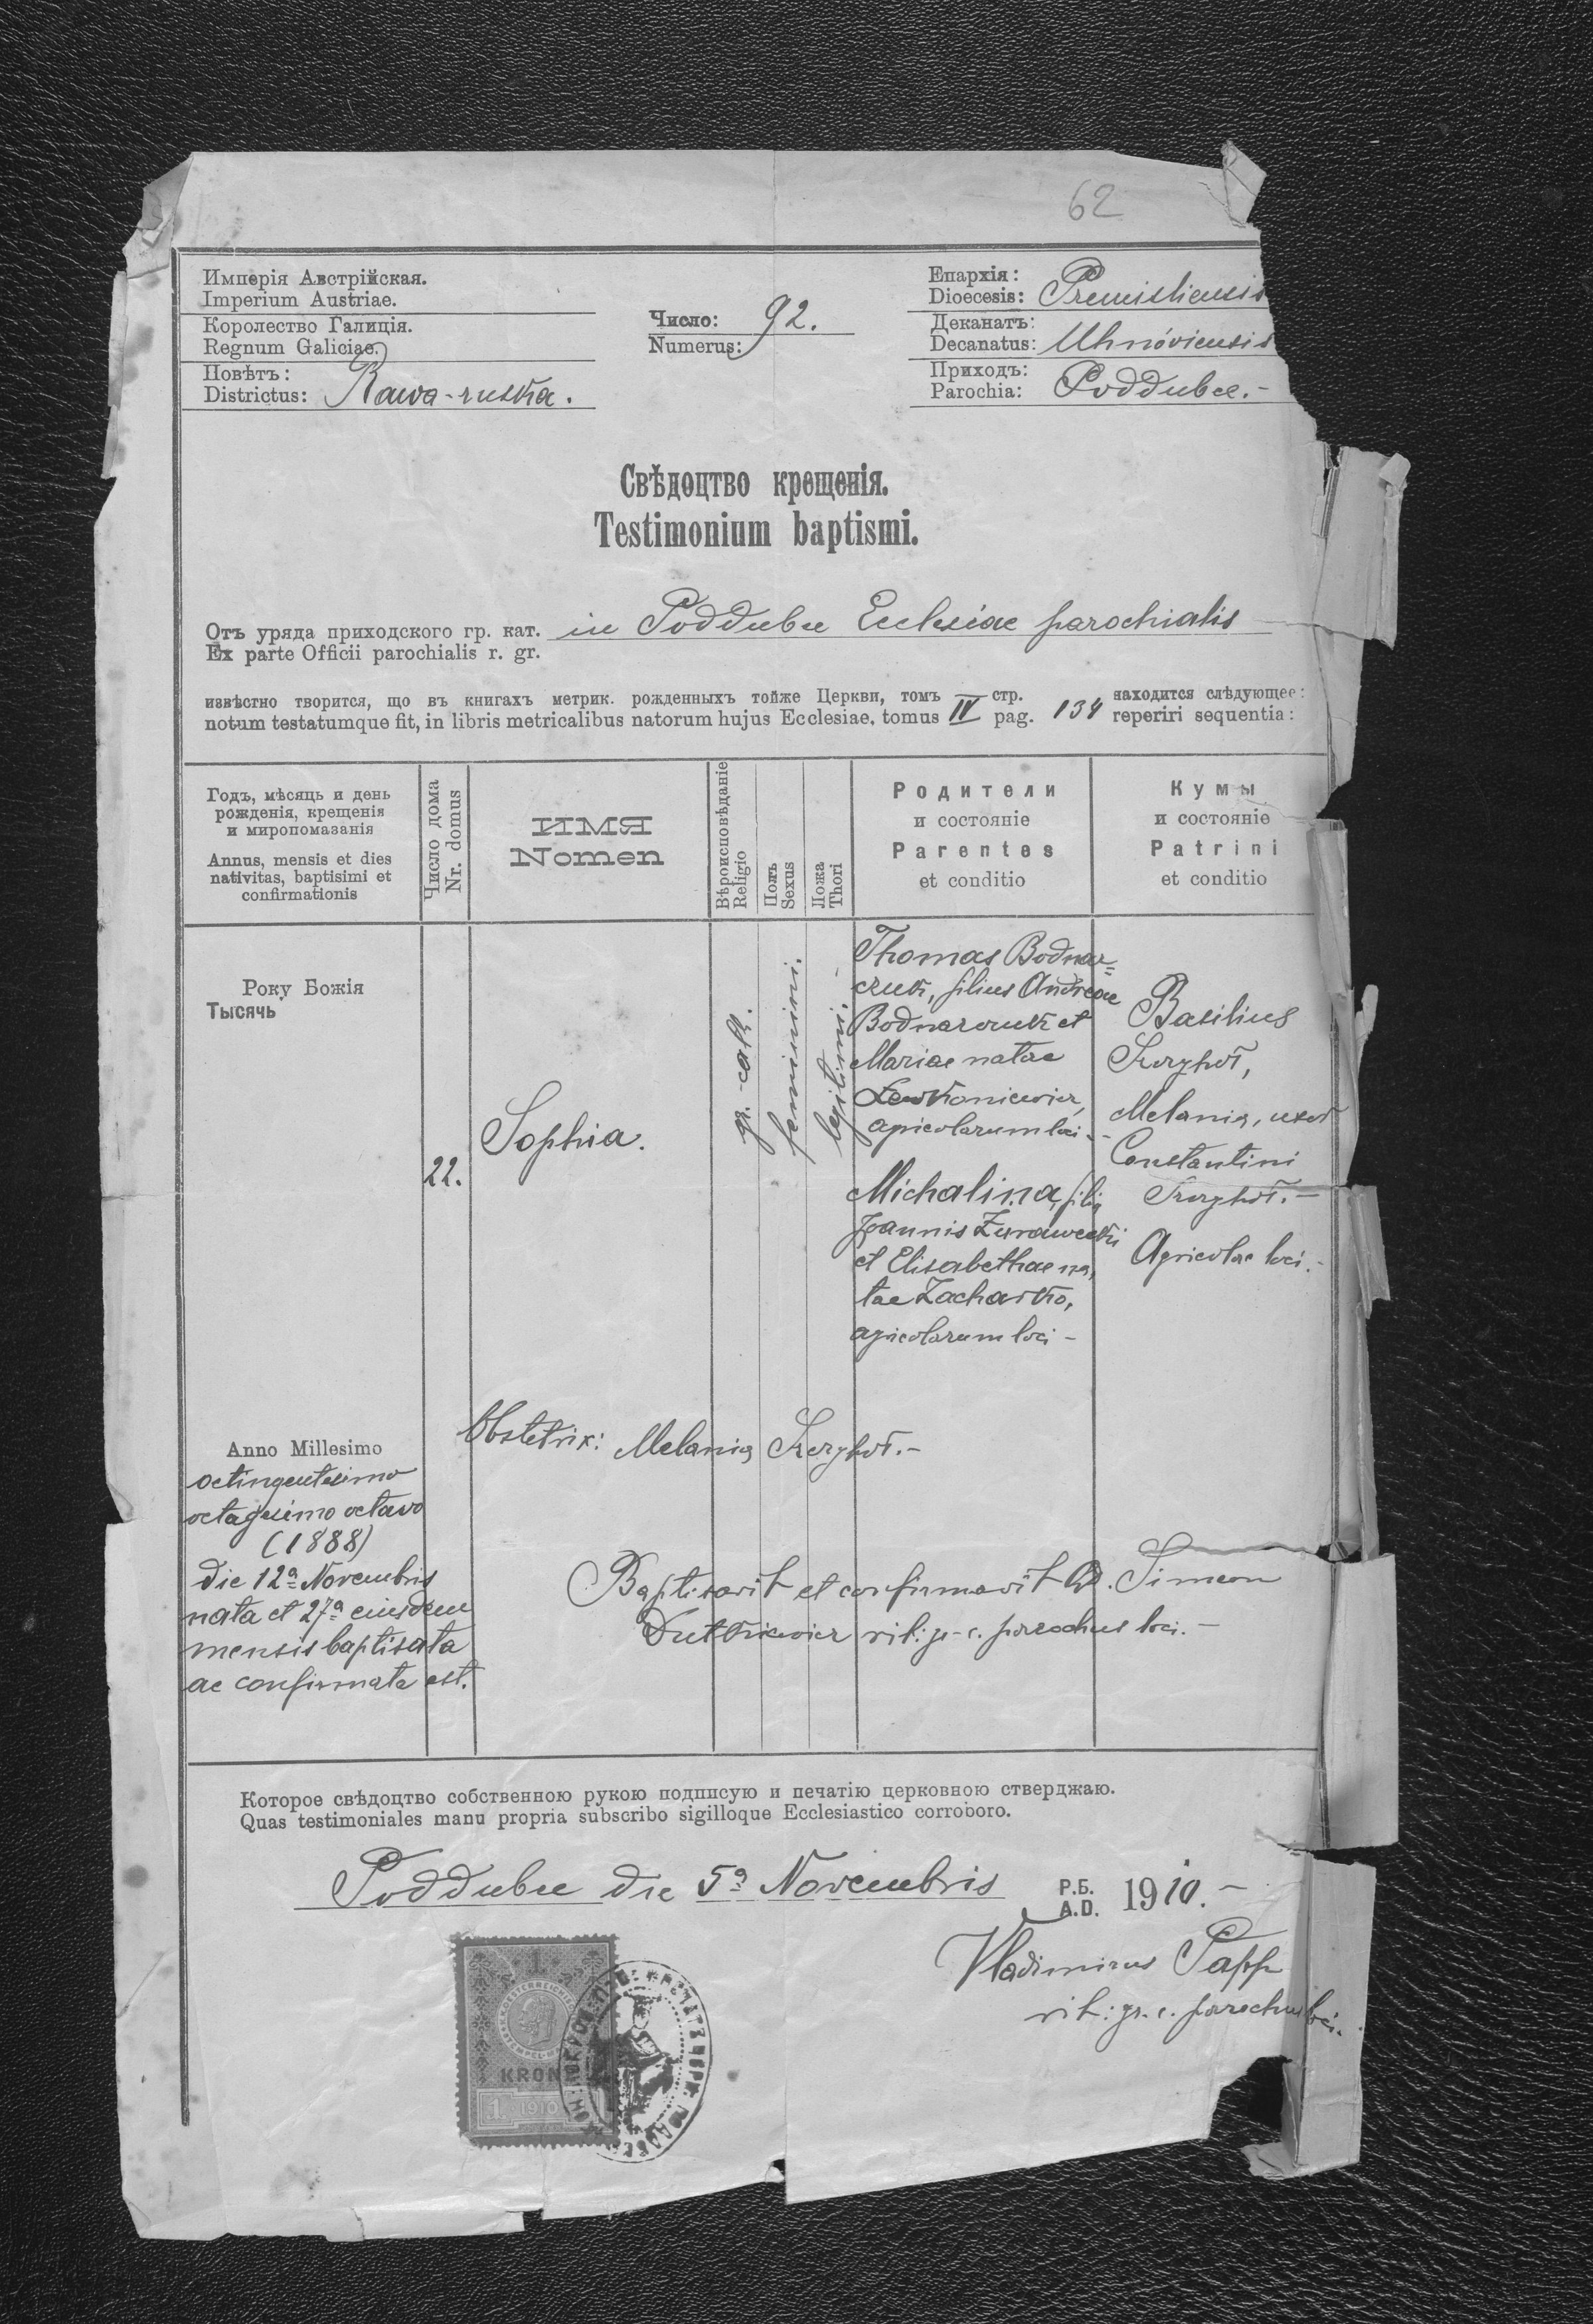 62
Имперія Австрійская.
Imperium Austriae.
Королество Галиція.
Regnum Galiciae.
Повѣтъ:
Districtus: Rawa-ruska.
Число: 92.
Numerus:
Епархія:
Dioecesis: Premisliensis
Деканатъ:
Decanatus: Uhnóviensis
Приходъ:
Parochia: Poddubce.-
Свѣдоцтво крещенія.
Testimonium baptismi.
Отъ уряда приходского гр. кат. in Poddubce Ecclesiae parochialis
Ex parte Officii parochialis r. gr.
извѣстно творится, що въ книгахъ метрик. рожденныхъ тойже Церкви, томъ IV стр. 134 находится слѣдующее:
notum testatumque fit, in libris metricalibus natorum hujus Ecclesiae, tomus pag. reperiri sequentia:
Годъ, мѣсяць и день
рожденія, крещенія
и миропомазанія
Annus, mensis et dies
nativitas, baptisimi et
confirmationis
Число дома
Nr. domus
ИМЯ
Nomen
Вѣроисповѣданіе
Religio
Полъ
Sexus
Ложа
Thori
Родители
и состояніе
Parentes
et conditio
Кумы
и состояніе
Patrini
et conditio
Року Божія
Тысячь
Anno Millesimo
octingentesimo
octagesimo octavo
(1888)
die 12a Novembris
nata et 27a eiusdem
mensis baptisata
ac confirmata est.
22.
Sophia.
gr.-cath.
feminini.
legitimi.-
Thomas Bodnar=
czuk, filius Andreae
Bodnarczuk et
Mariae natae
Lewkoniewicz,
agricolarum loci.-
Michalina, filia
Joannis Żurawecki
et Elisabethae na,
tae Zacharko,
agricolarum loci -
Basilius
Melania, uxor
Constantini
Agricolae loci.-
Obstetrix: Melania
Baptisavit et confirmavit Ad. Simeon
Dutkiewicz rit: gr-c. parochus loci.-
Которое свѣдоцтво собственною рукою подписую и печатію церковною стверджаю.
Quas testimoniales manu propria subscribo sigilloque Ecclesiastico corroboro.
Poddubce die 5a Novembris Р.Б. 1910.-
A.D.
Vladimirus Papp
rit: gr. c. parochus loci.
1
KRONE
1. 1910